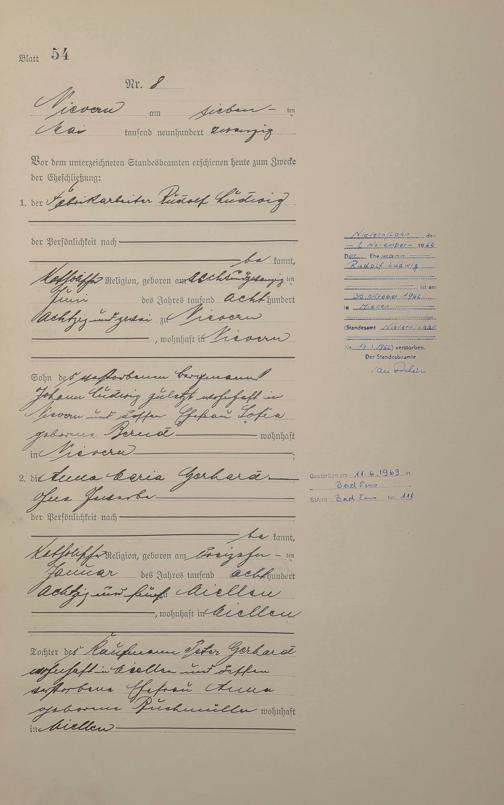 Blatt 54
Nr. 8
Nievern am sieben-ten
Mai tausend neunhundert zwanzig
Vor dem unterzeichneten Standesbeamten erschienen heute zum Zwecke
der Eheschließung:
1. der Fabrikarbeiter Rudolf Ludwig
der Persönlichkeit nach
be kannt,
katholischer Religion, geboren am sechsundzwanzigten
Juni des Jahres tausend acht hundert
achtzig und zwei zu Nievern
, wohnhaft in Nievern
Sohn des verstorbenen Bergmann
Johann Ludwig zuletzt wohnhaft in
Nievern und dessen Ehefrau Sofia
geborene wohnhaft
in Nievern
2. die Anna Maria Gerhard
ohne Gewerbe
der Persönlichkeit nach
be kannt,
katholischer Religion, geboren am dreizehn-ten
Januar des Jahres tausend acht hundert
achtzig und fünf Miellen
, wohnhaft in Miellen
Tochter des Kaufmann Peter Gerhard
wohnhaft in Miellen und dessen
verstorbene Ehefrau Anna
geborene Buchmüller wohnhaft
in Miellen
Nievern/Lahn den
November
Der Ehemann
Rudolf Ludwig
ist am
Oktober
in
(Standesamt
) verstorben.
Der Standesbeamte
Gestorben am 11.6.1969 in
Bad Ems
StAmt Bad Ems Nr. 111